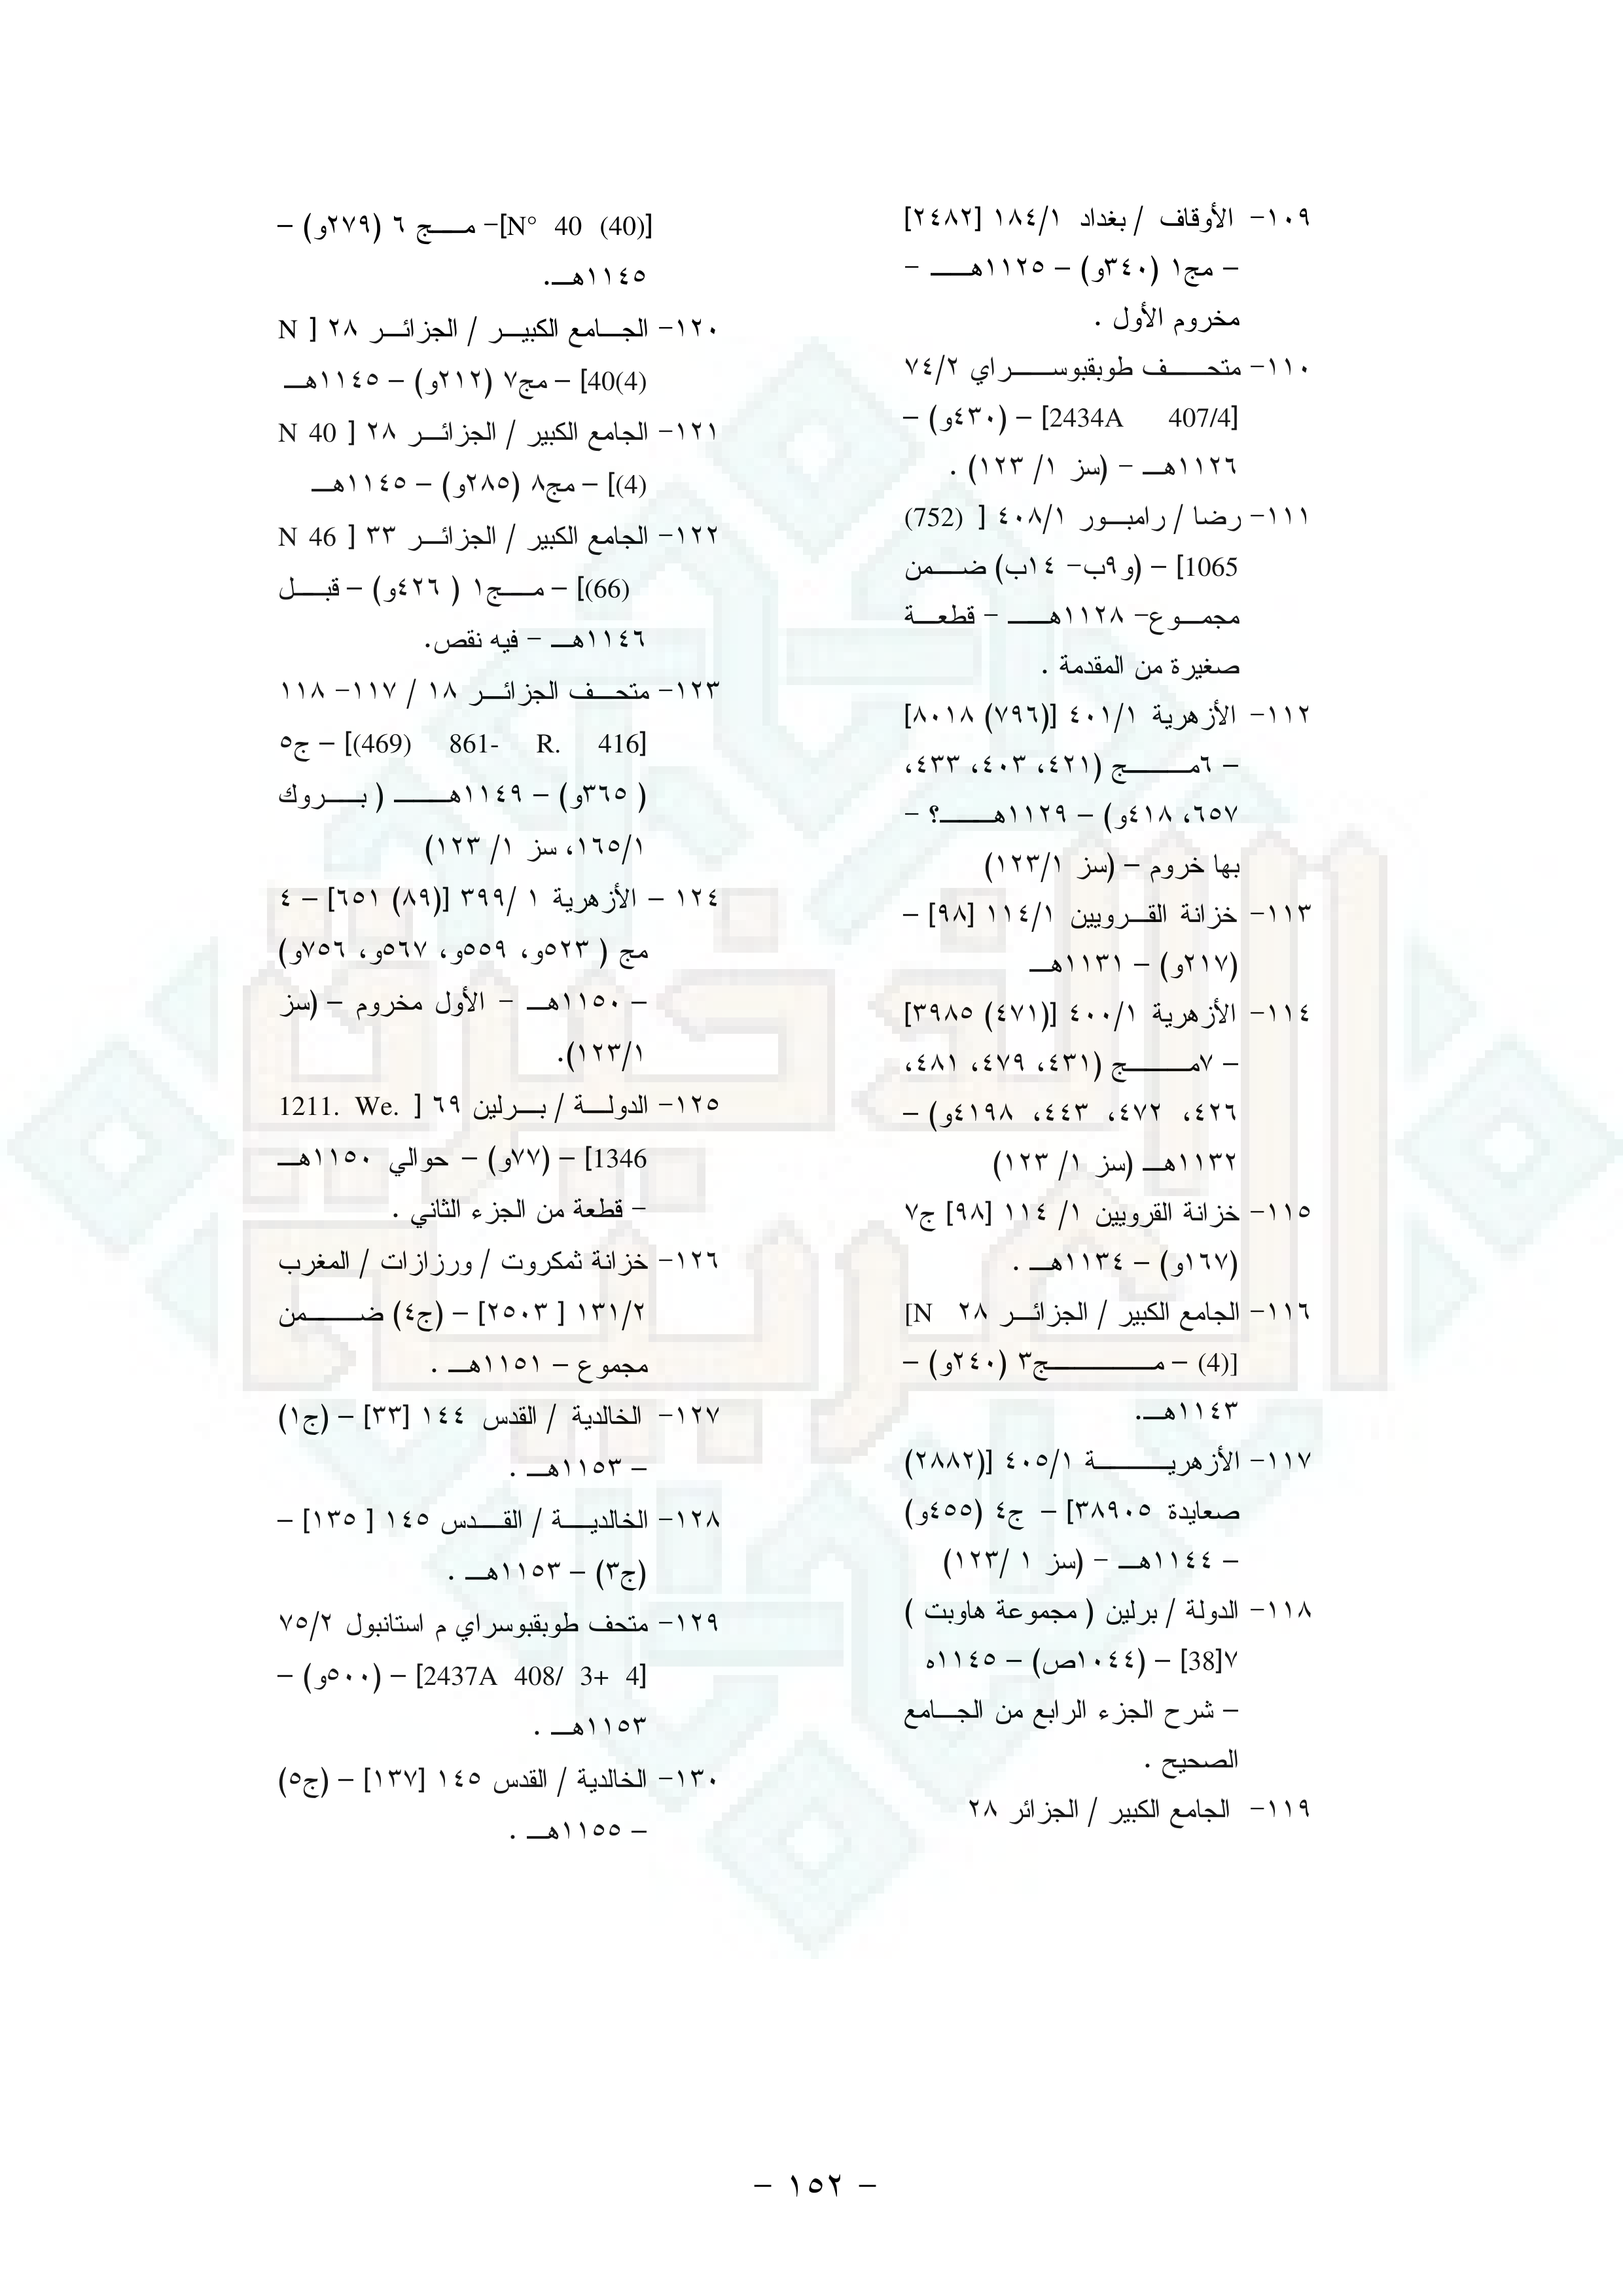 ١٠٩- الأوقاف / بغداد ١٨٤/١ [٢٤٨٢]
– مج١ (٣٤٠و) – ١١٢٥هـ -
مخروم الأول .
١١٠- متحف طوبقبوسراي ٧٤/٢
[2434A 407/4] – (٤٣٠و) –
١١٢٦هـ - (سز ١/ ١٢٣) .
١١١- رضا / رامبور ٤٠٨/١ [ (752)
1065] – (و٩ب- ١٤ب) ضمن
مجموع- ١١٢٨هـ - قطعة
صغيرة من المقدمة .
١١٢- الأزهرية ٤٠١/١ [(٧٩٦) ٨٠١٨]
– ٦مج (٤٢١، ٤٠٣، ٤٣٣،
٦٥٧، ٤١٨و) – ١١٢٩هـ؟ -
بها خروم – (سز ١٢٣/١)
١١٣- خزانة القرويين ١١٤/١ [٩٨] –
(٢١٧و) – ١١٣١هـ
١١٤- الأزهرية ٤٠٠/١ [(٤٧١) ٣٩٨٥]
– ٧مج (٤٣١، ٤٧٩، ٤٨١،
٤٢٦، ٤٧٢، ٤٤٣، ٤١٩٨و) –
١١٣٢هـ (سز ١/ ١٢٣)
١١٥- خزانة القرويين ١/ ١١٤ [٩٨] ج٧
(١٦٧و) – ١١٣٤هـ .
١١٦- الجامع الكبير / الجزائر ٢٨ N]
[(4) – مج٣ (٢٤٠و) –
١١٤٣هـ.
١١٧- الأزهرية ٤٠٥/١ [(٢٨٨٢)
صعايدة ٣٨٩٠٥] – ج٤ (٤٥٥و)
– ١١٤٤هـ - (سز ١ /١٢٣)
١١٨- الدولة / برلين ( مجموعة هاوبت )
٧[38] – (١٠٤٤ص) – ١١٤٥ه
– شرح الجزء الرابع من الجامع
الصحيح .
١١٩- الجامع الكبير / الجزائر ٢٨
[N° 40 (40)]- مج ٦ (٢٧٩و) –
١١٤٥هـ.
١٢٠- الجامع الكبير / الجزائر ٢٨ [ N
40(4)] – مج٧ (٢١٢و) – ١١٤٥هـ
١٢١- الجامع الكبير / الجزائر ٢٨ [ N 40
(4)] – مج٨ (٢٨٥و) – ١١٤٥هـ
١٢٢- الجامع الكبير / الجزائر ٣٣ [ N 46
(66)] – مج١ ( ٤٢٦و) – قبل
١١٤٦هـ - فيه نقص.
١٢٣- متحف الجزائر ١٨ / ١١٧- ١١٨
[(469) 861- R. 416] – ج٥
( ٣٦٥و) – ١١٤٩هـ ( بروك
١٦٥/١، سز ١/ ١٢٣)
١٢٤ – الأزهرية ١ /٣٩٩ [(٨٩) ٦٥١] – ٤
مج ( ٥٢٣و، ٥٥٩و، ٥٦٧و، ٧٥٦و)
– ١١٥٠هـ - الأول مخروم – (سز
١٢٣/١).
١٢٥- الدولة / برلين ٦٩ [ 1211. We.
1346] – (٧٧و) – حوالي ١١٥٠هـ
- قطعة من الجزء الثاني .
١٢٦- خزانة ثمكروت / ورزازات / المغرب
١٣١/٢ [ ٢٥٠٣] – (ج٤) ضمن
مجموع – ١١٥١هـ .
١٢٧- الخالدية / القدس ١٤٤ [٣٣] – (ج١)
– ١١٥٣هـ .
١٢٨- الخالدية / القدس ١٤٥ [ ١٣٥] –
(ج٣) – ١١٥٣هـ .
١٢٩- متحف طوبقبوسراي م استانبول ٧٥/٢
[2437A 408/ 3+ 4] – (٥٠٠و) –
١١٥٣هـ .
١٣٠- الخالدية / القدس ١٤٥ [١٣٧] – (ج٥)
– ١١٥٥هـ .
– ١٥٢ –